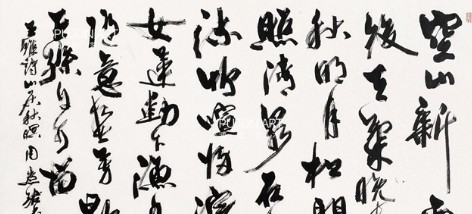 空山新雨
後天氣晚
秋明月松間
照清泉石
流竹喧歸浣
女蓮動下漁
隨意春芳歇
王孫自可留
王維詩山居秋暝